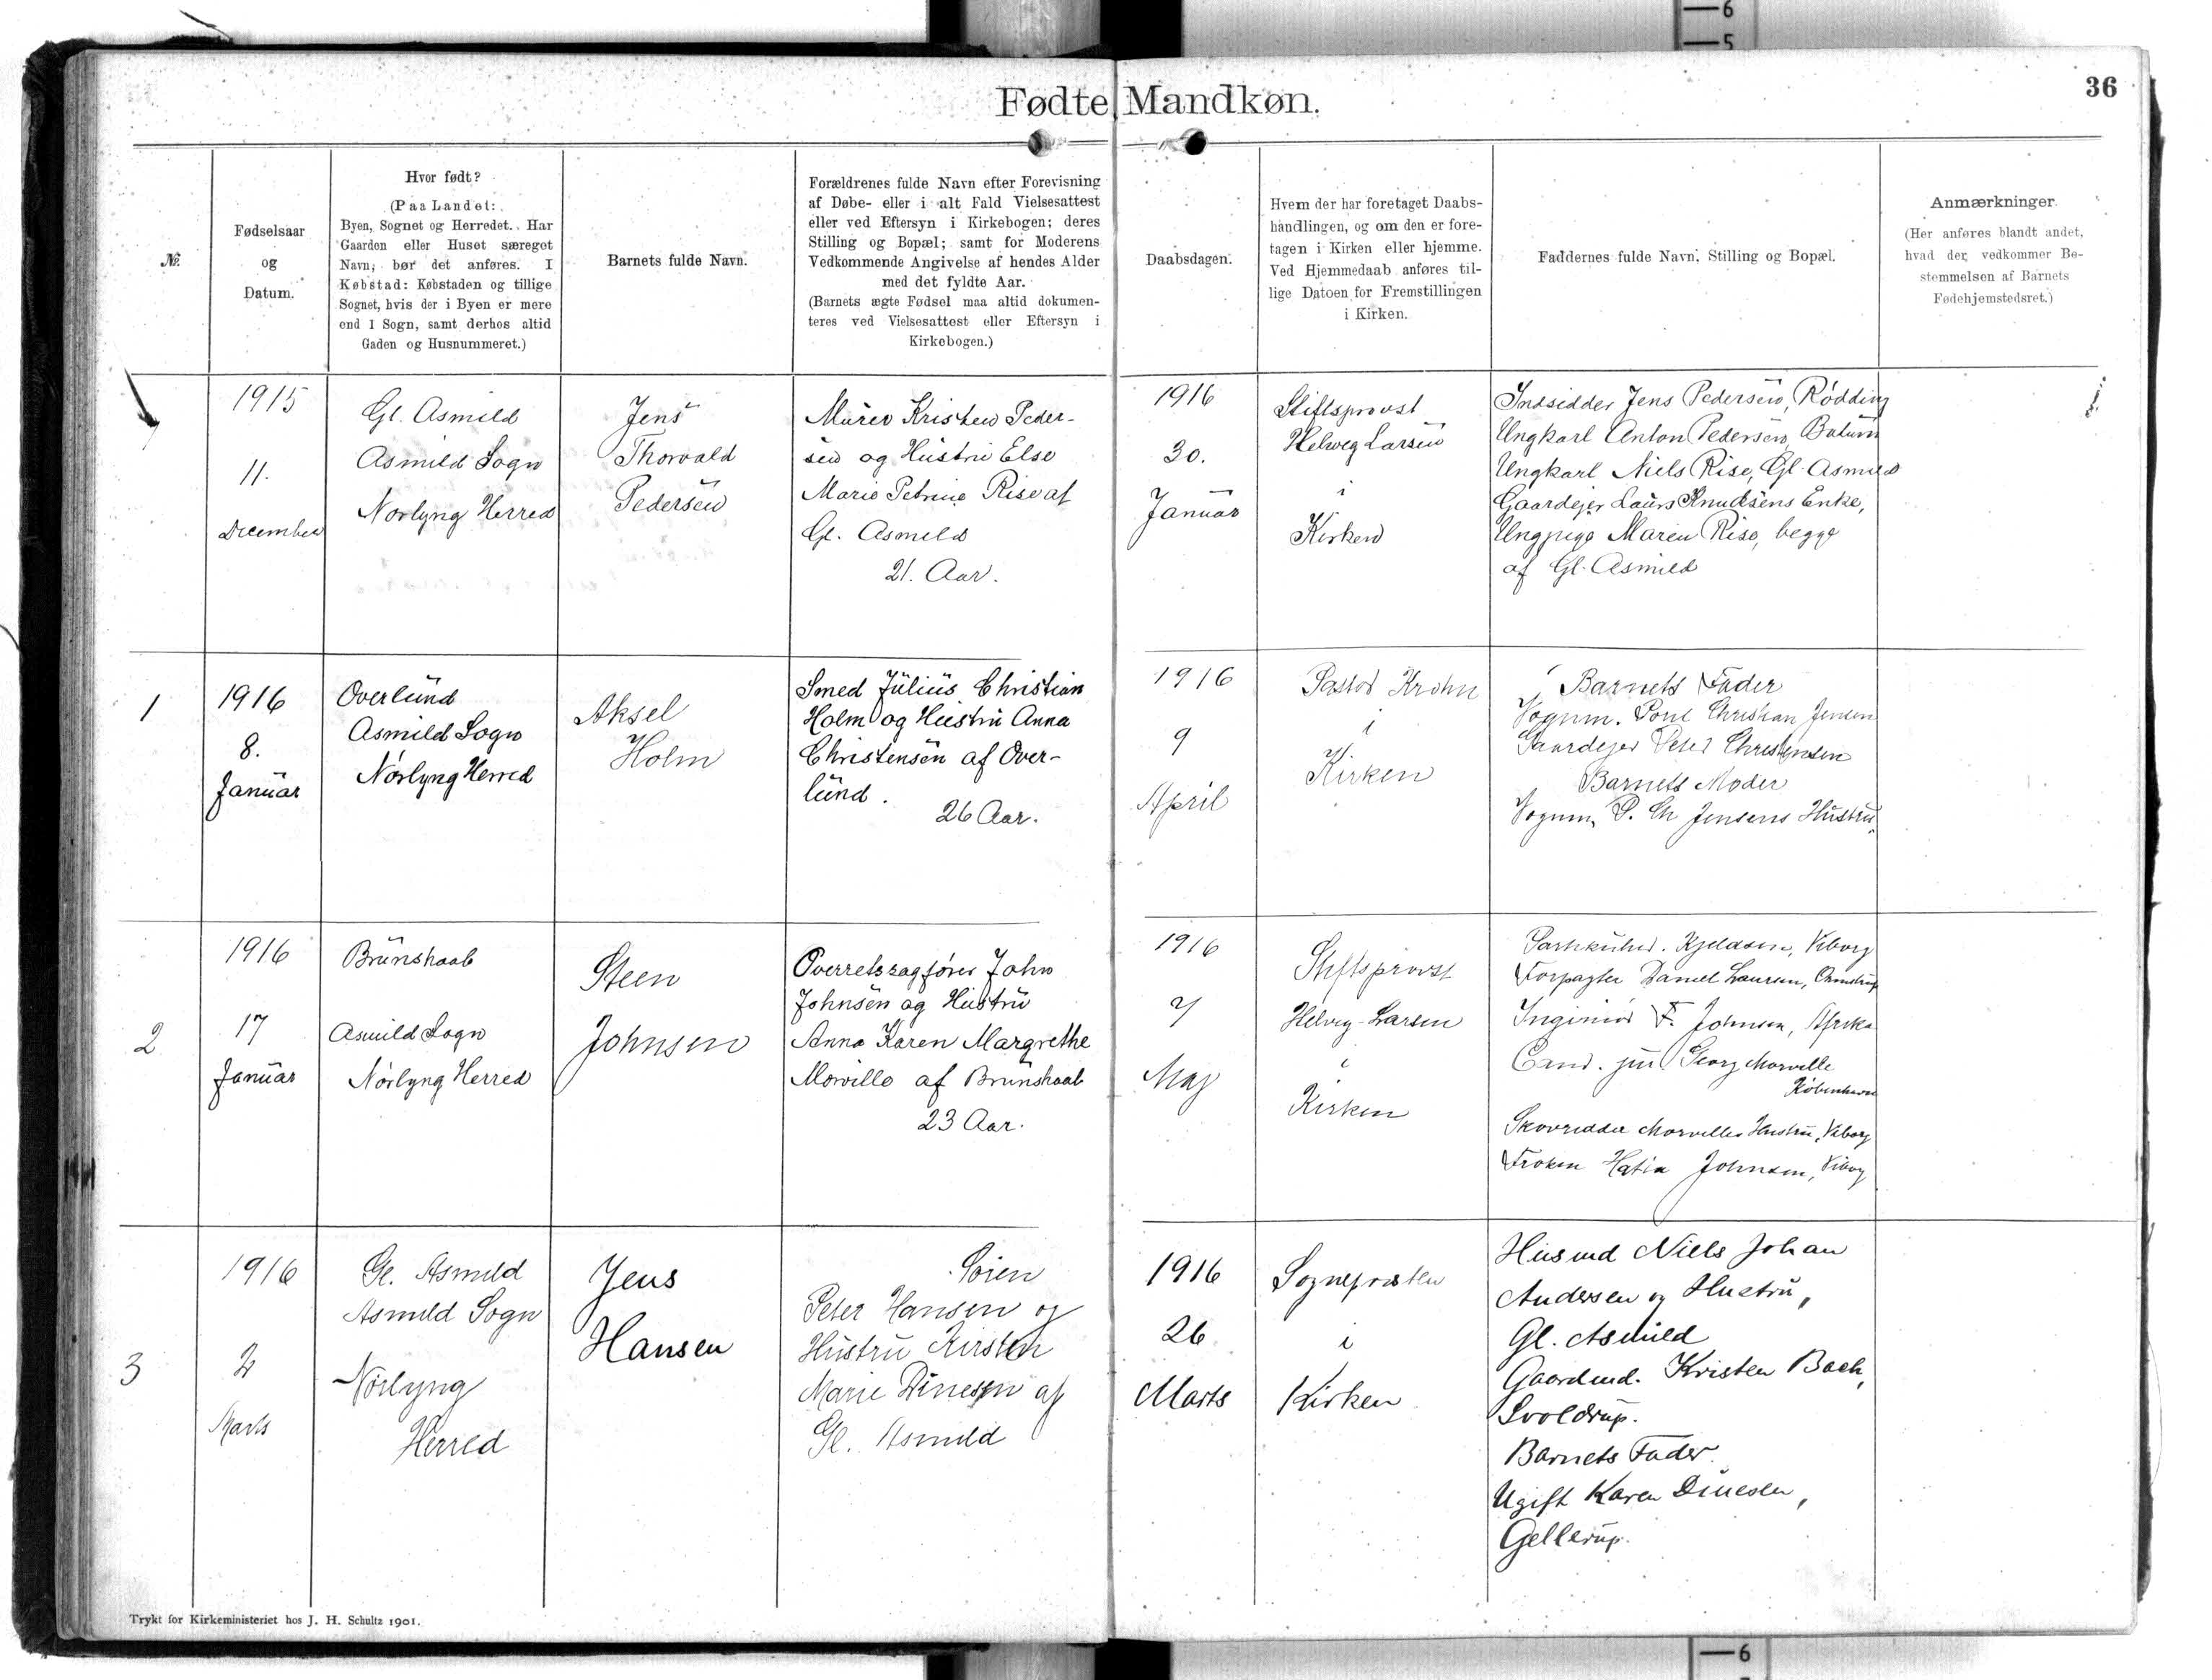 36
Fødte Mandkøn.
№.
Fødselsaar
og
Datum.
Hvor født?
(Paa Landet:
Byen, Sognet og Herredet. Har
Gaarden eller Huset særeget
Navn, bør det anføres. I
Købstad: Købstaden og tillige
Sognet, hvis der i Byen er mere
end 1 Sogn, samt derhos altid
Gaden og Husnummeret.)
Barnets fulde Navn.
Forældrenes fulde Navn efter Forevisning
af Døbe- eller i alt Fald Vielsesattest
eller ved Eftersyn i Kirkebogen; deres
Stilling og Bopæl; samt for Moderens
Vedkommende Angivelse af hendes Alder
med det fyldte Aar.
(Barnets ægte Fødsel maa altid dokumen-
teres ved Vielsesattest eller Eftersyn i
Kirkebogen.)
Daabsdagen.
Hvem der har foretaget Daabs-
handlingen, og om den er fore-
tagen i Kirken eller hjemme.
Ved Hjemmedaab anføres til-
lige Datoen for Fremstillingen
i Kirken.
Faddernes fulde Navn, Stilling og Bopæl.
Anmærkninger
(Her anføres blandt andet,
hvad der vedkommer Be-
stemmelsen af Barnets
Fødehjemstedsret.)
1915
11.
December
Gl. Asmild
Asmild Sogn
Nørlyng Herred
Jens
Thorvald
Pedersen
Murer Kristen Peder-
sen og Hustru Else
Marie Petrine Rise af
Gl. Asmild
21. Aar.
1916
30.
Januar
Stiftsprovst
Helweg Larsen
i
Kirken
Indsidder Jens Pedersen, Rødding
Ungkarl Anton Pedersen, Batum
Ungkarl Niels Rise, Gl. Asmild
Gaardejer Laurs Knudsens Enke,
Ungpige Maren Rise, begge
af Gl. Asmild
1
1916
8.
Januar
Overlund
Asmild Sogn
Nørlyng Herred
Aksel
Holm
Smed Julius Christian
Holm og Hustru Anna
Christensen af Over-
lund.
26 Aar.
1916
9
April
Pastor Krohn
i
Kirken
Barnets Fader
Vognm. Poul Christian Jensen
Gaardejer Peter Christensen
Barnets Moder
Vognm. P. Chr Jensens Hustru
2
1916
17
Januar
Brunshaab
Asmild Sogn
Nørlyng Herred
Steen
Johnsen
Overretssagfører John
Johnsen og Hustru
Anna Karen Margrethe
Morville af Brunshaab
23 Aar.
1916
7
Maj
Stiftsprovst
Helveg-Larsen
i
Kirken
Kjeldsen, Viborg
Forpagter Daniel Laursen,
Ingeniør F. Johnsen, Afrika
Cand. jur Georg Morville
København
Skovridder Morvilles Hustru, Viborg
Frøken Johnsen, Viborg
3
1916
2
Marts
Gl. Asmild
Asmild Sogn
Nørlyng
Herred
Jens
Hansen
Søren
Peter Hansen og
Hustru Kirsten
Marie Dinesen af
Gl. Asmild
1916
26
Marts
Sognepræsten
i
Kirken
Husmd Niels Johan
Andersen og Hustru,
Gl. Asmild
Gaardmd. Kristen Bach,
Svoldrup.
Barnets Fader.
Ugift Karen Dinesen,
Gellerup.
Trykt for Kirkeministeriet hos J. H. Schultz 1901.
6
5
6